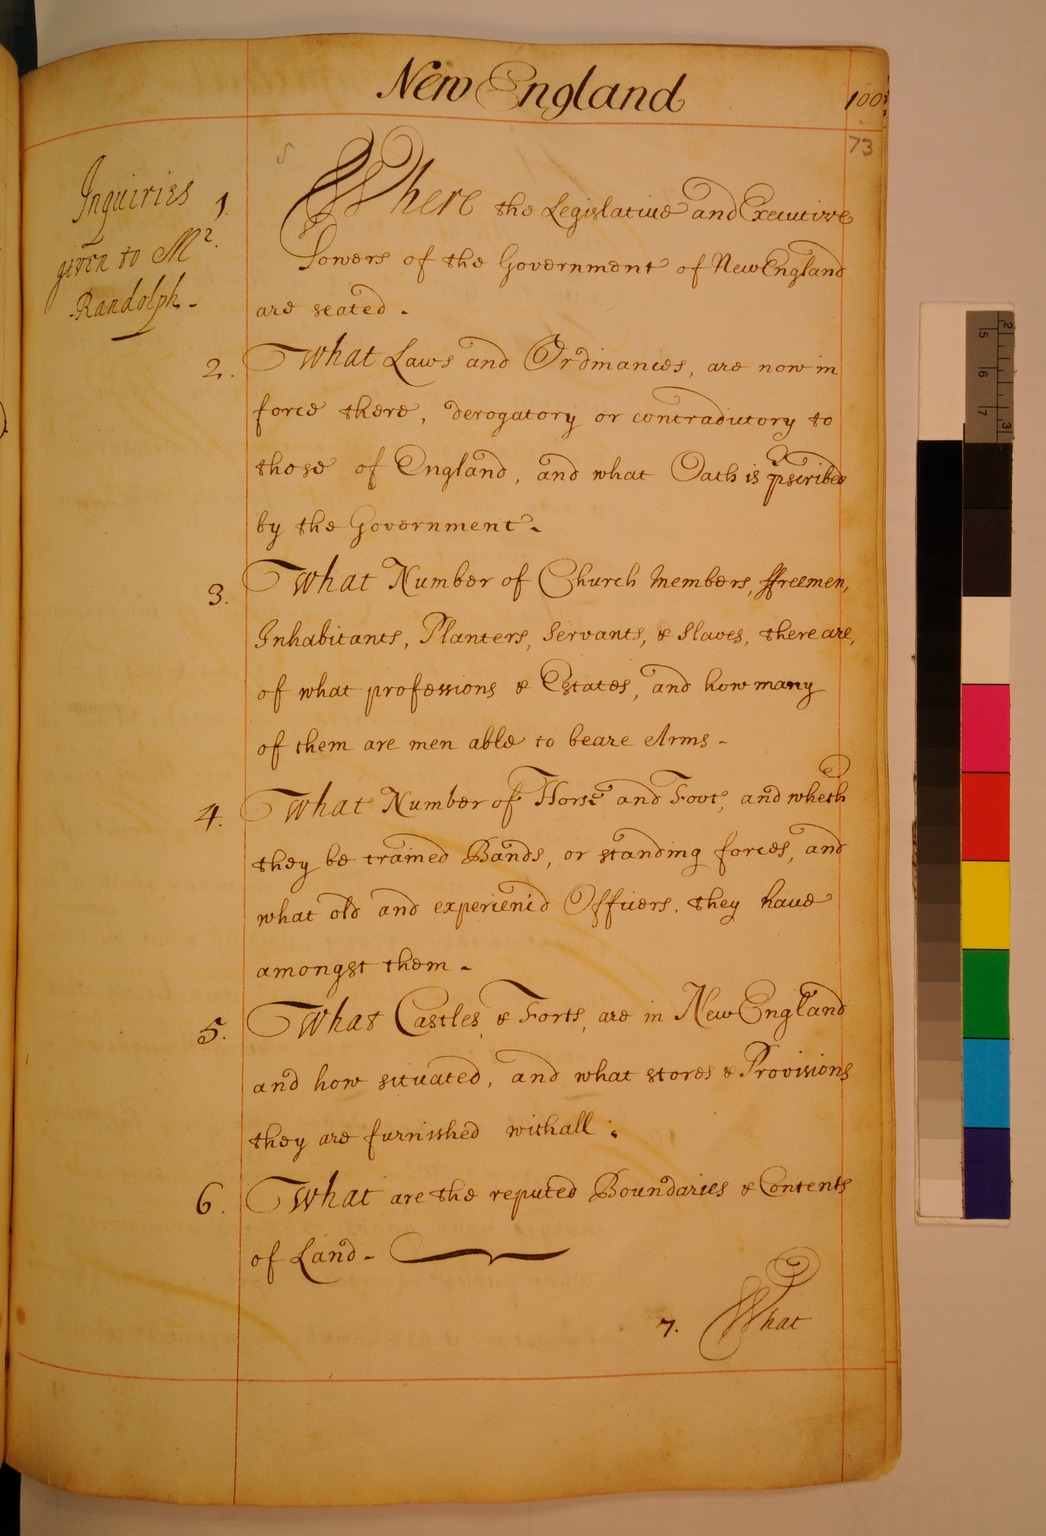 New England
100
73
Inquiries
given to Mr.
Randolph -
1. Where the Legislative and Executive
Powers of the Government of New England
are seated .
2. What Laws and Ordinances, are now in
force there, derogatory or contradictory to
those of England, and what Oath is pscribed
by the Government.
3. What Number of Church members, ffreemen,
Inhabitants, Planters, Servants, & Slaves, there are,
of what professions & Estates, and how many
of them are men able to beare Arms -
4. What Number of Horse and Foot, and wheth
they be trained Bands, or standing forces, and
what old and experienc'd Officers, they have
amongst them -
5. What Castles & Forts, are in New England
and how situated, and what stores & Provisions
they are furnished withall .
6. What are the reputed Boundaries & Contents
of Land -
7. What
2
3
5
6
7